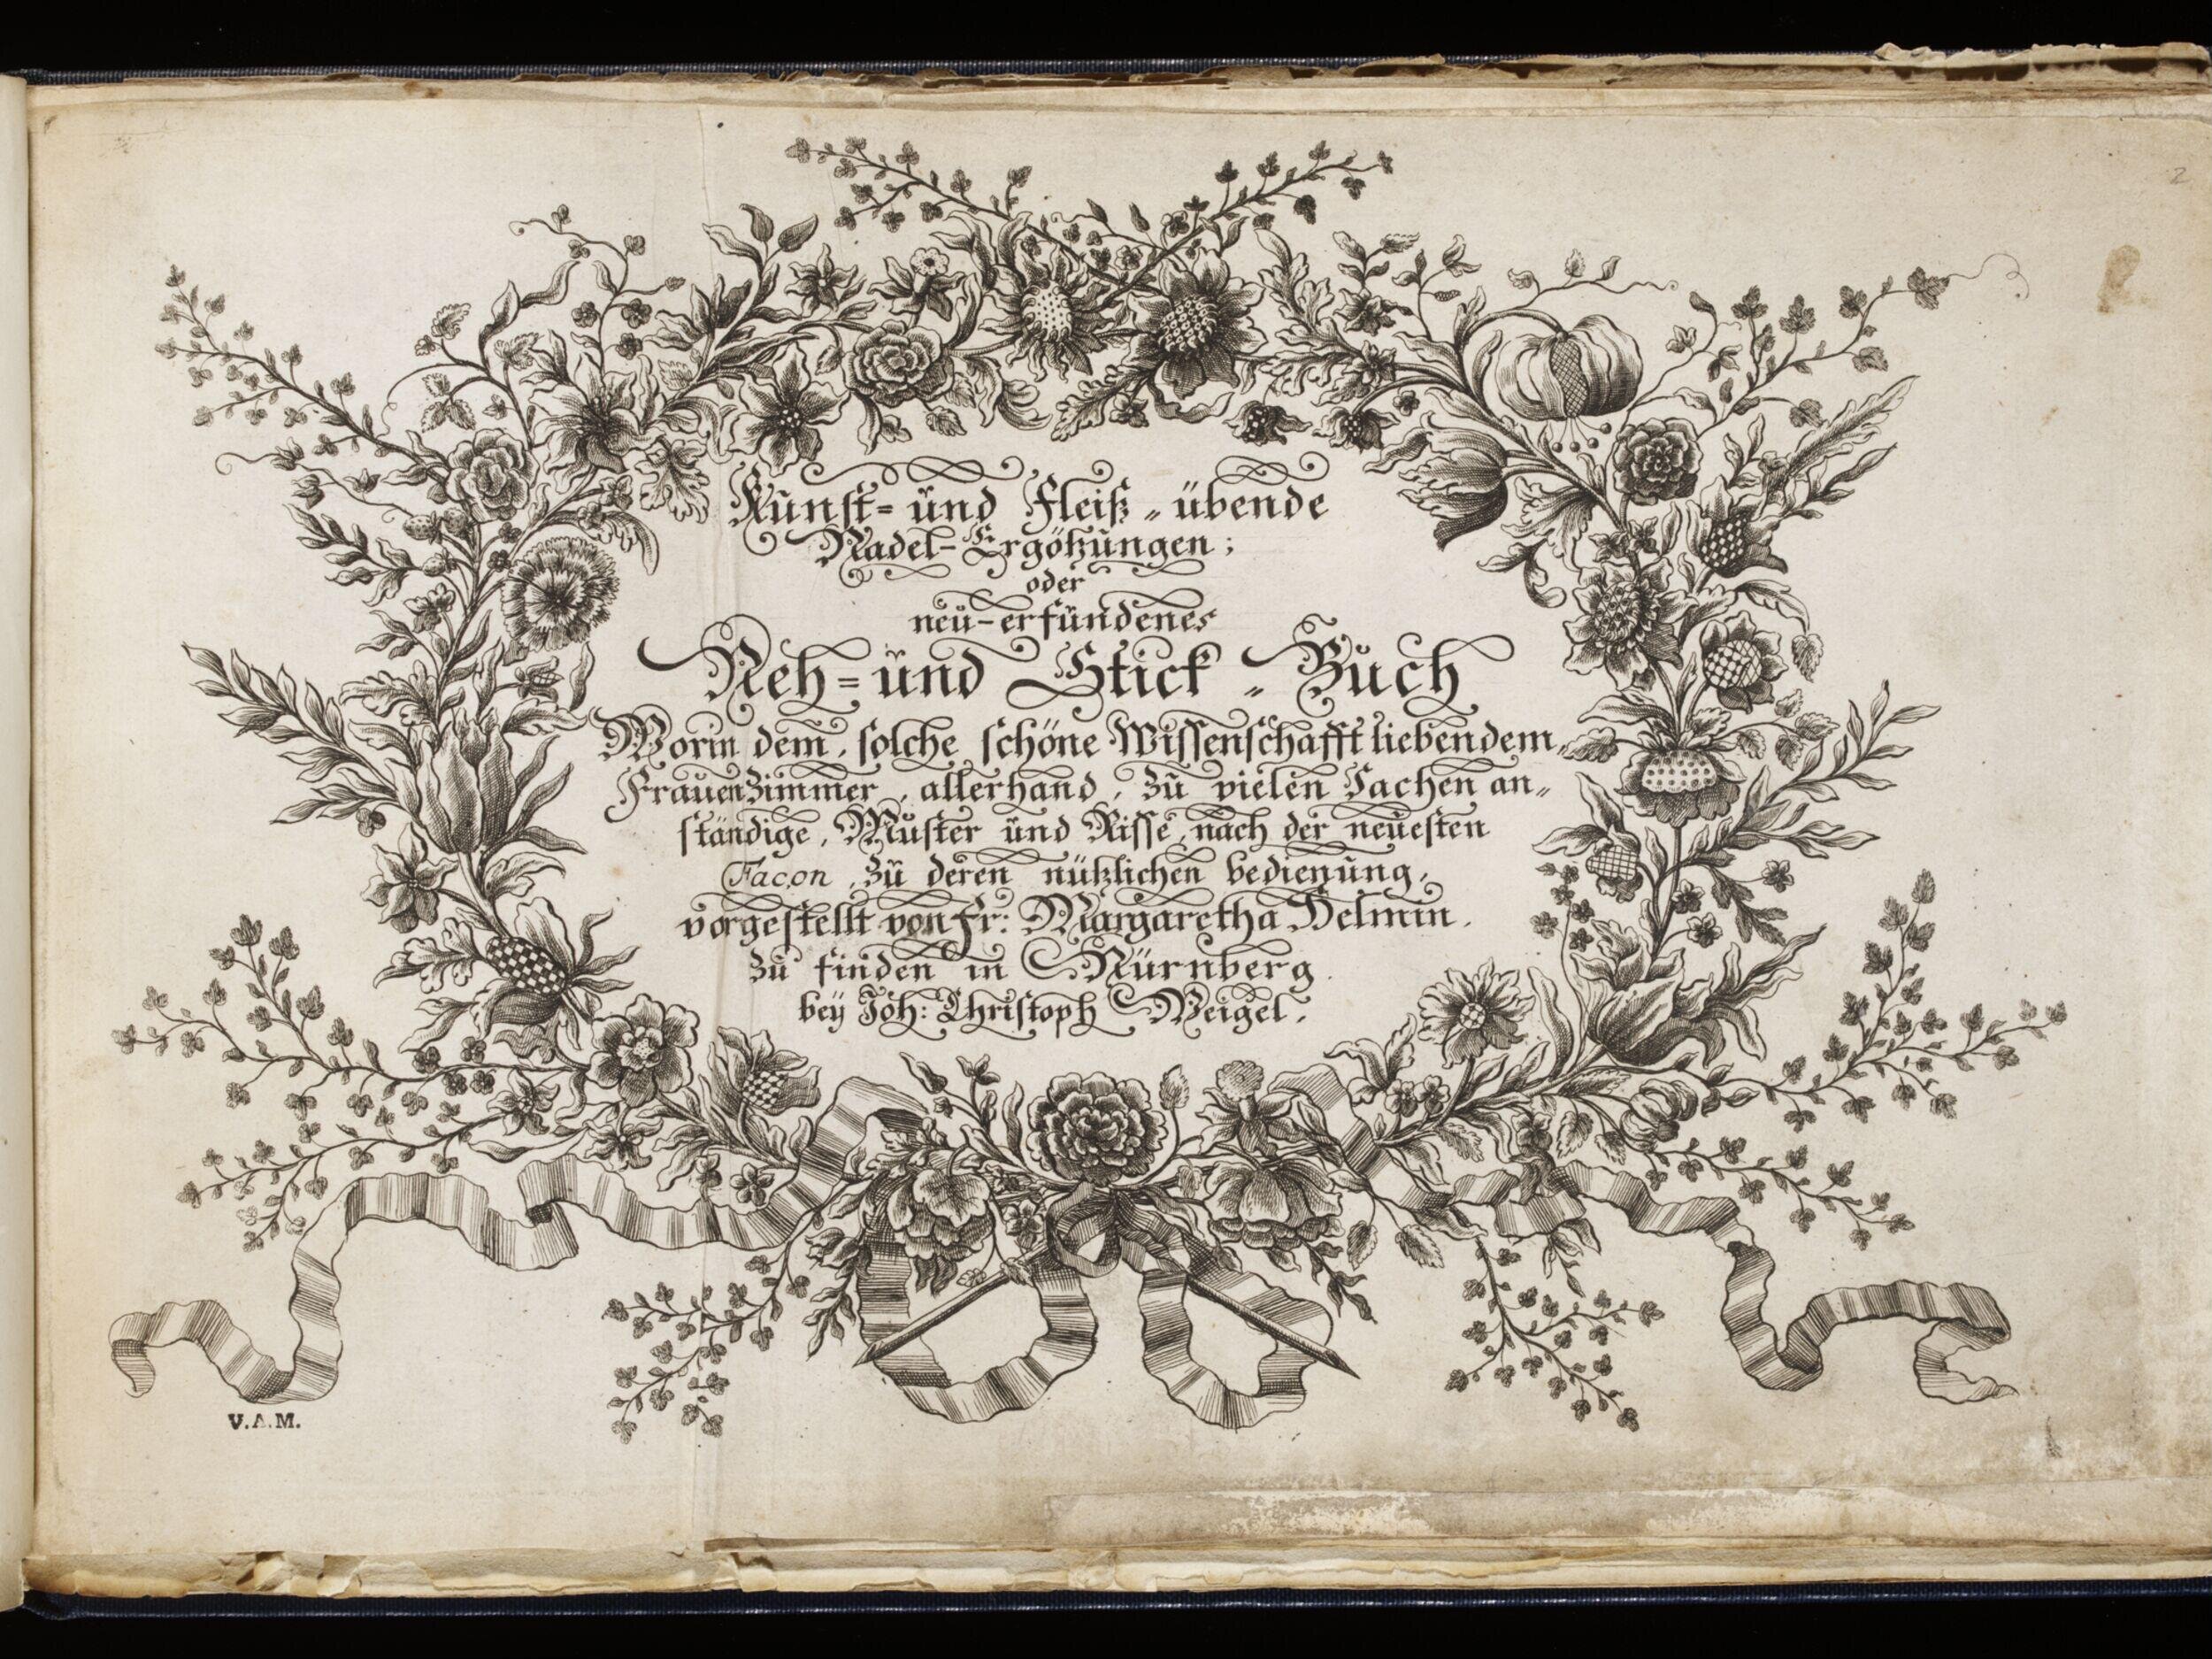 Kunst- und Fleiß„übende
Nadel-Ergötzungen;
oder
neu-erfundenes
Neh= und Stick„Buch
Worin dem, solche schöne Wissenschafft liebendem„
Frauenzimmer, allerhand, zu vielen Sachen an„
ständige, Muster und Risse, nach der neuesten
Facon, zu deren nützlichen bedienung,
vorgestellt von Fr: Margaretha Helmin.
zu finden in Nürnberg
beÿ Joh: Christoph Weigel.
V.A.M.
2